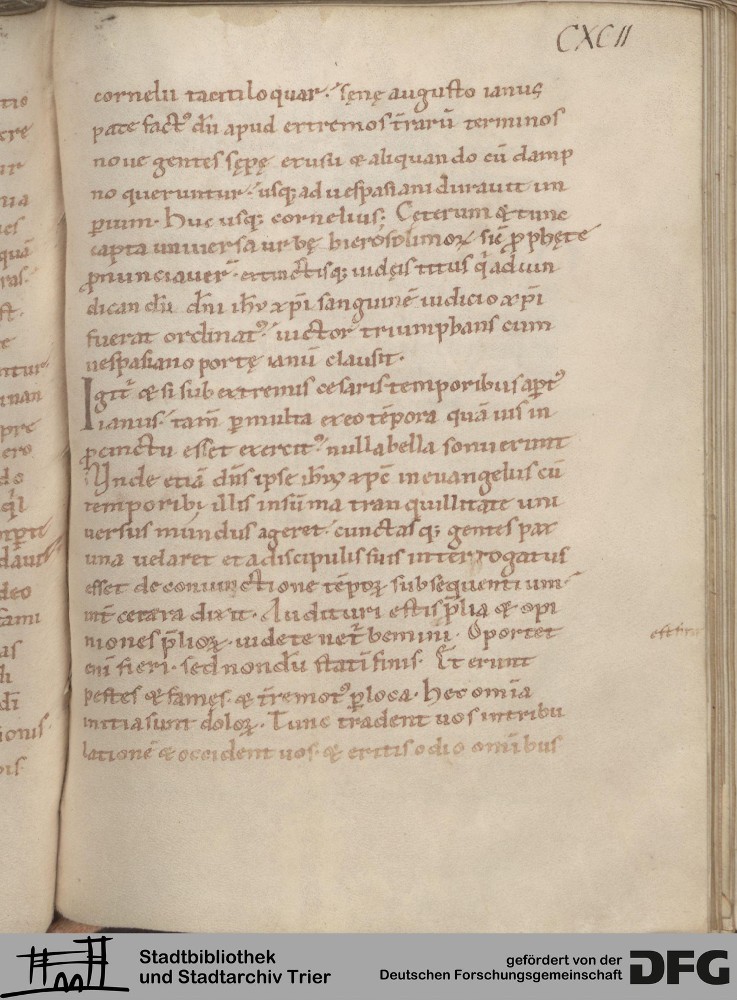 CXCII
cornelii taciti loquar. senę augusto ianus
patefact᷒ dū apud extremos t̄rarū terminos
noue gentes sępę ex usu & aliquando cū damp
no queruntur. usq; ad uespasiani durauit im
ꝑium. Huc usq; cornelius; Cęterum & tunc
capta uniuersa urbę hierosolimoꝝ sic̄ ꝓphęte
ꝓnunciauer̄. extinctisq; iudęis titus q̇ ad uin
dicandū dn̄i ih̄u xp̄i sanguinē iudicio xp̄i
fuerat ordinat᷒ uictor triumphans cum
uespasiano portę ianū clausit.
Igit̄ & si sub extremis cesaris temporibus ap̄t᷒
ianus. tam̄ ꝑ multa ex eo tēpora quā uis in
ꝓcinctu esset exercit᷒ nulla bella sonuerunt
Unde etiā dn̄s ipse ih̄us xp̄c in euangeliis cū
temporibꝫ illis in sūma tranquillitate uni
uersus mundus ageret. cunctasq; gentes pax
una uelaret et a discipulis suis interrogatus
esset de coniunctione tēpoꝝ subsequentium
int̄ cetera dixit. Audituri estis p̄lia & opi
niones p̄lioꝝ. uidete ne t̄bemini. Oportet
eni fieri. sed nondū statī finis. Et erunt
pestes & famęs. & t̄remot᷒ ꝑ loca. Hec omīa
initia sunt doloꝝ. Tunc tradent uos in tribu
lationē & occident uos. & eritis odio omībus
Stadtbibliothek
und Stadtarchiv Trier
gefördert von der
Deutschen Forschungsgemeinschaft
DFG